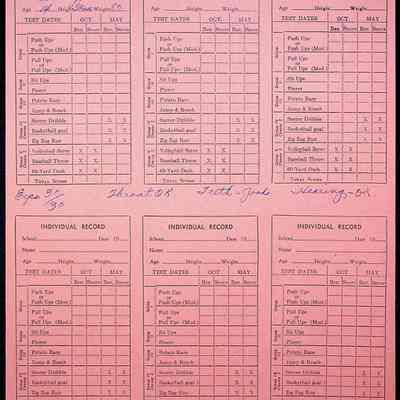 Age Height Weight 80 Age Height Weight Age Height Weight
TEST DATES OCT MAY TEST DATES OCT MAY TEST DATES OCT MAY
Raw Score Raw Score Raw Score Raw Score Raw Score Raw Score
Push Ups Push Ups Push Ups
or or or
Push Ups (Mod.) Push Ups (Mod.) Push Ups (Mod.)
Pull Ups Pull Ups Pull Ups
or or or
Pull Ups (Mod.) Pull Ups (Mod.) Pull Ups (Mod.)
Sit Ups Sit Ups Sit Ups
Potato Race Potato Race Potato Race
Jump & Reach Jump & Reach Jump & Reach
Soccer Dribble X X Soccer Dribble X X Soccer Dribble X X
Basketball goal X X Basketball goal X X Basketball goal X X
Zig Zag Run X X Zig Zag Run X X Zig Zag Run X X
Volleyball Serve X X Volleyball Serve X X Volleyball Serve X X
Baseball Throw X X Baseball Throw X X Baseball Throw X X
60-Yard Dash X X 60-Yard Dash X X 60-Yard Dash X X
Total Score Total Score Total Score
Eyes 20/30 Throat OK Teeth - Good Hearing - OK
INDIVIDUAL RECORD INDIVIDUAL RECORD INDIVIDUAL RECORD
School Date 19 School Date 19 School Date 19
Name Name Name
Age Height Weight Age Height Weight Age Height Weight
TEST DATES OCT MAY TEST DATES OCT MAY TEST DATES OCT MAY
Raw Score Raw Score Raw Score Raw Score Raw Score Raw Score
Push Ups Push Ups Push Ups
or or or
Push Ups (Mod.) Push Ups (Mod.) Push Ups (Mod.)
Pull Ups Pull Ups Pull Ups
or or or
Pull Ups (Mod.) Pull Ups (Mod.) Pull Ups (Mod.)
Sit Ups Sit Ups Sit Ups
Potato Race Potato Race Potato Race
Jump & Reach Jump & Reach Jump & Reach
Soccer Dribble X X Soccer Dribble X X Soccer Dribble X X
Basketball goal X X Basketball goal X X Basketball goal X X
Zig Zag Run X X Zig Zag Run X X Zig Zag Run X X